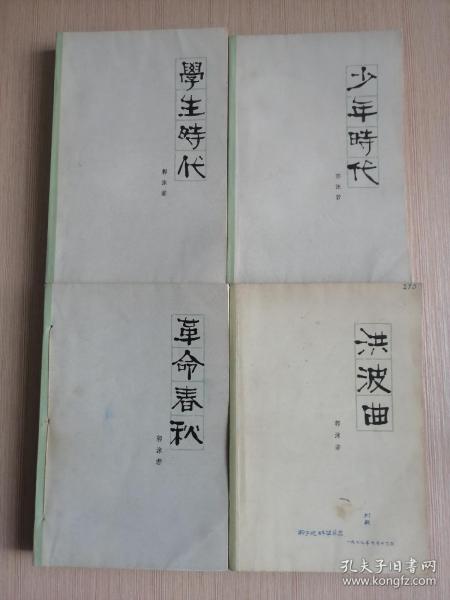 學生時代
郭沫若
少年時代
郭沫若
革命春秋
郭沫若
洪波曲
郭沫若
孔夫子旧书网